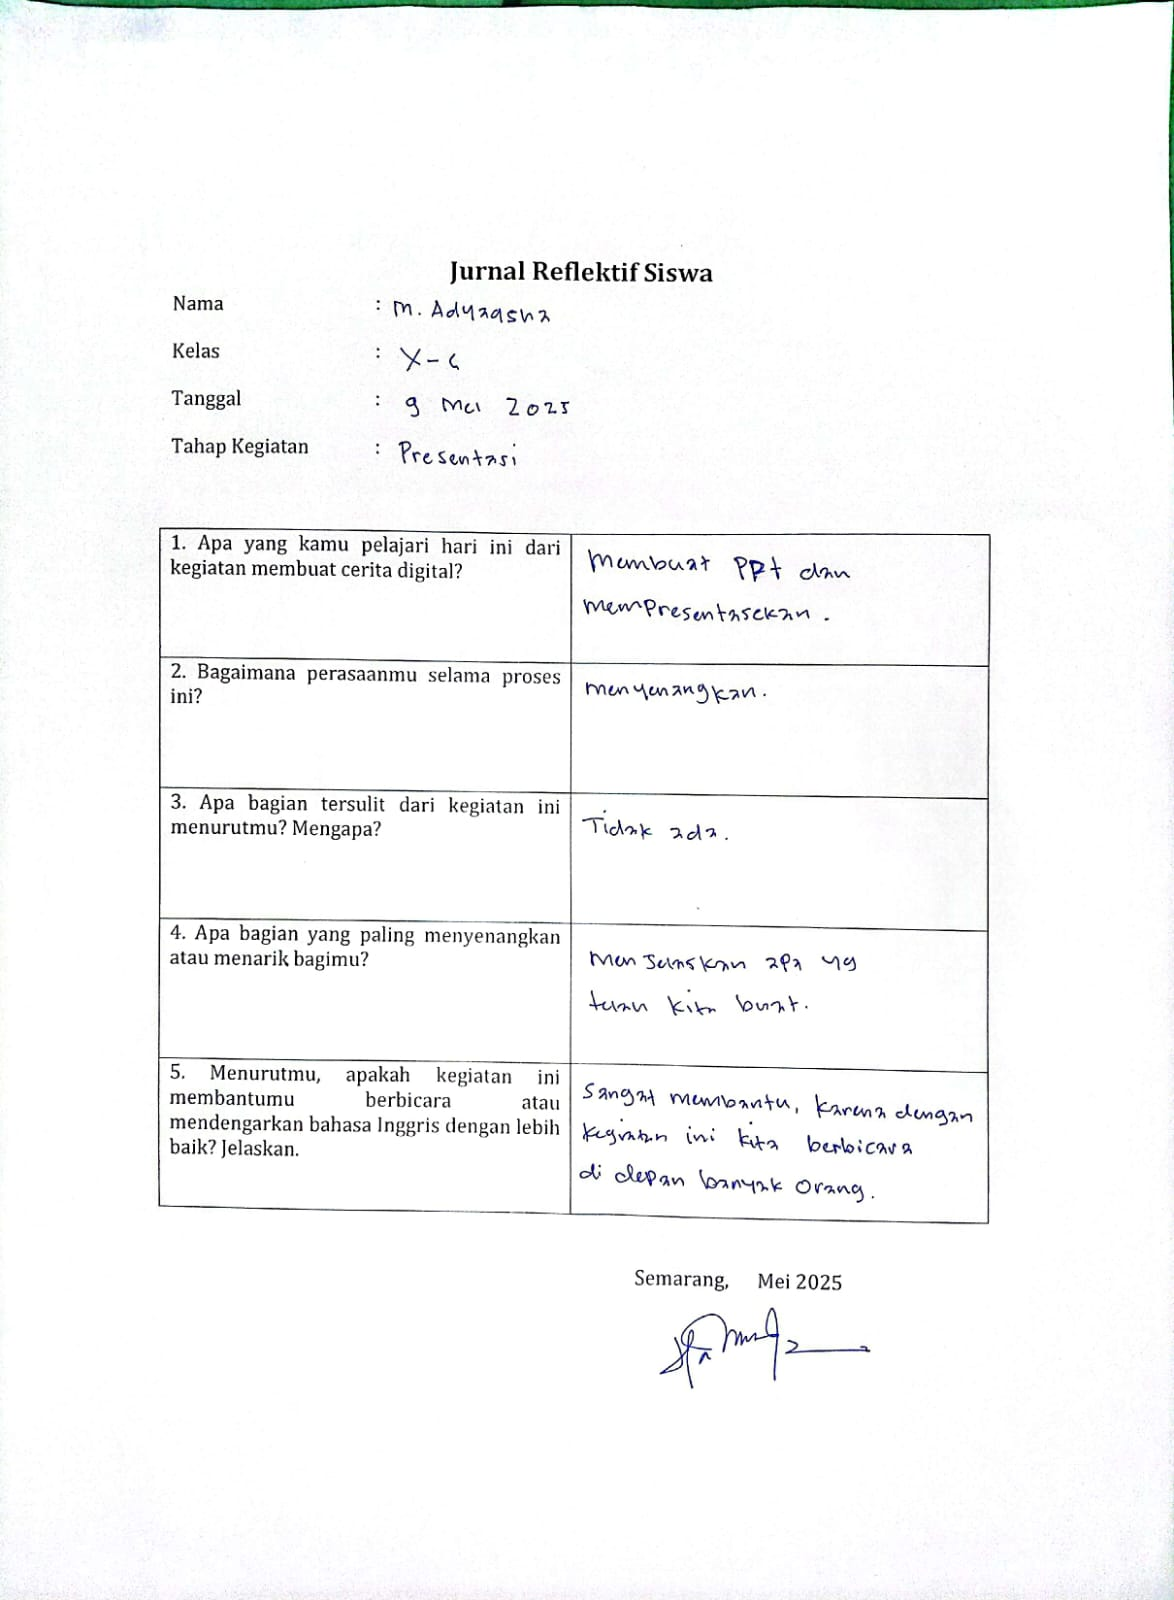 Jurnal Reflektif Siswa
Nama : M. Adyaasha
Kelas : X-6
Tanggal : 9 Mei 2025
Tahap Kegiatan : Presentasi
1. Apa yang kamu pelajari hari ini dari
kegiatan membuat cerita digital?
Membuat PPt dan
memPresentasekan.
2. Bagaimana perasaanmu selama proses
ini?
menyenangkan.
3. Apa bagian tersulit dari kegiatan ini
menurutmu? Mengapa?
Tidak ada.
4. Apa bagian yang paling menyenangkan
atau menarik bagimu?
Menjelaskan apa yg
kita buat.
5. Menurutmu, apakah kegiatan ini
membantumu berbicara atau
mendengarkan bahasa Inggris dengan lebih
baik? Jelaskan.
Sangat membantu, karena dengan
kegiatan ini kita berbicara
di depan banyak orang.
Semarang, Mei 2025